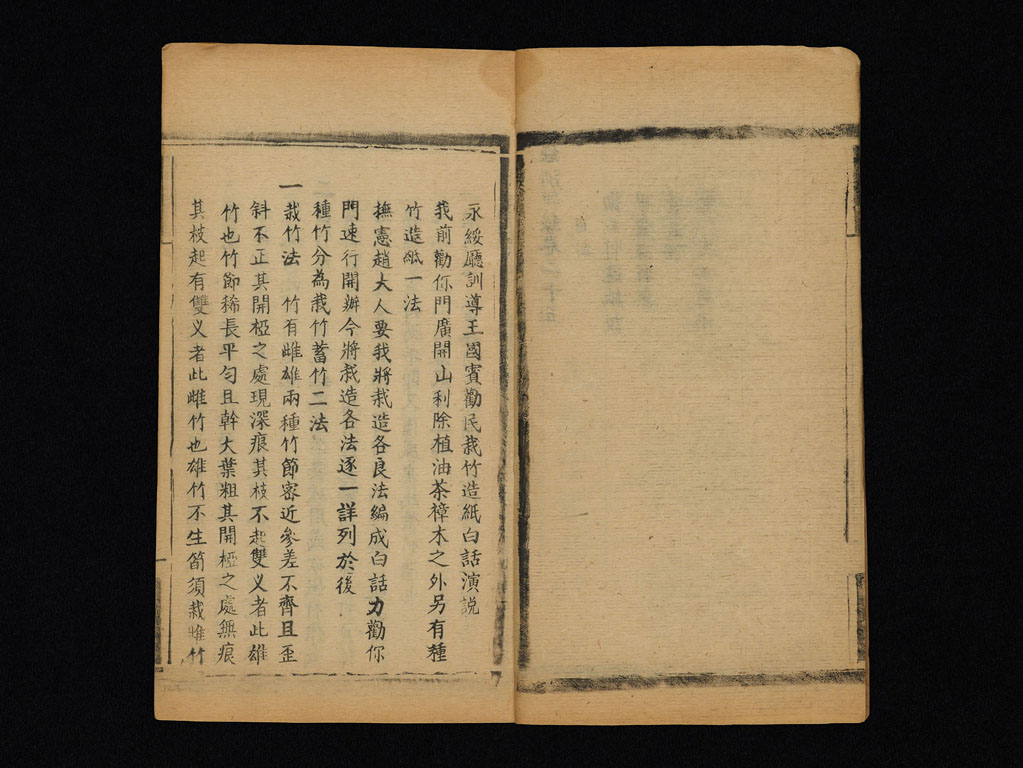 永綏廳訓導王國賓勸民栽竹造紙白話演説
我前勸你門廣開山利除植油茶樟木之外另有種
竹造紙一法
撫憲趙大人要我將栽造各良法編成白話力勸你
門速行開辦今將栽造各法逐一詳列於後
種竹分為栽竹蓄竹二法
一栽竹法 竹有雌雄兩種竹節密近參差不齊且歪
斜不正其開椏之處現深痕其枝不起雙义者此雄
竹也竹節稀長平勻且幹大葉粗其開椏之處無痕
其枝起有雙义者此雌竹也雄竹不生筍須栽雌竹